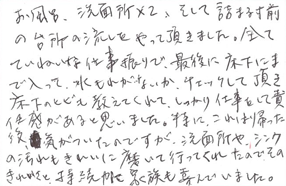 お風呂、洗面所×2、そして詰まる寸前
の台所の流しをやって頂きました。全て
ていねいな仕事振りで、最後に床下にま
で入って、水もれがないか、チェックして頂き
床下のビデオも教えてくれて、しっかり仕事をして責
任感があると思いました。特に、これは帰った
後気がついたのですが、洗面所や、シンク
の汚れもきれいに磨いて行ってくれたのでその
きれいさと、持続力に家族も喜んでいました。